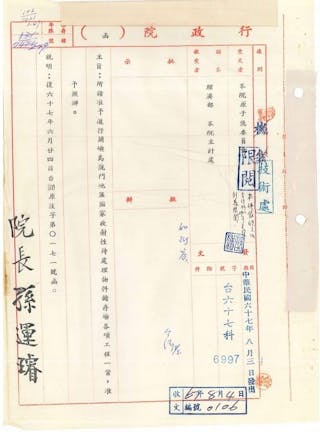 行政院（函）
速別
受文者 本院原子能委員會
副本收受者 經濟部 本院主計處
示批
辦擬
限閱
技術處
發文
中華民國六十七年八月三日發出
台六十七科
6997
主旨：所請准予進行闢蘭嶼龍門地區國家放射性待處理物料儲存場各項工程一案，准予照辦。
說明：復六十七年六月廿四日台(67)原放字第〇一七一號函。
院長孫運璿
收 67年8月4日
文 編號 0106